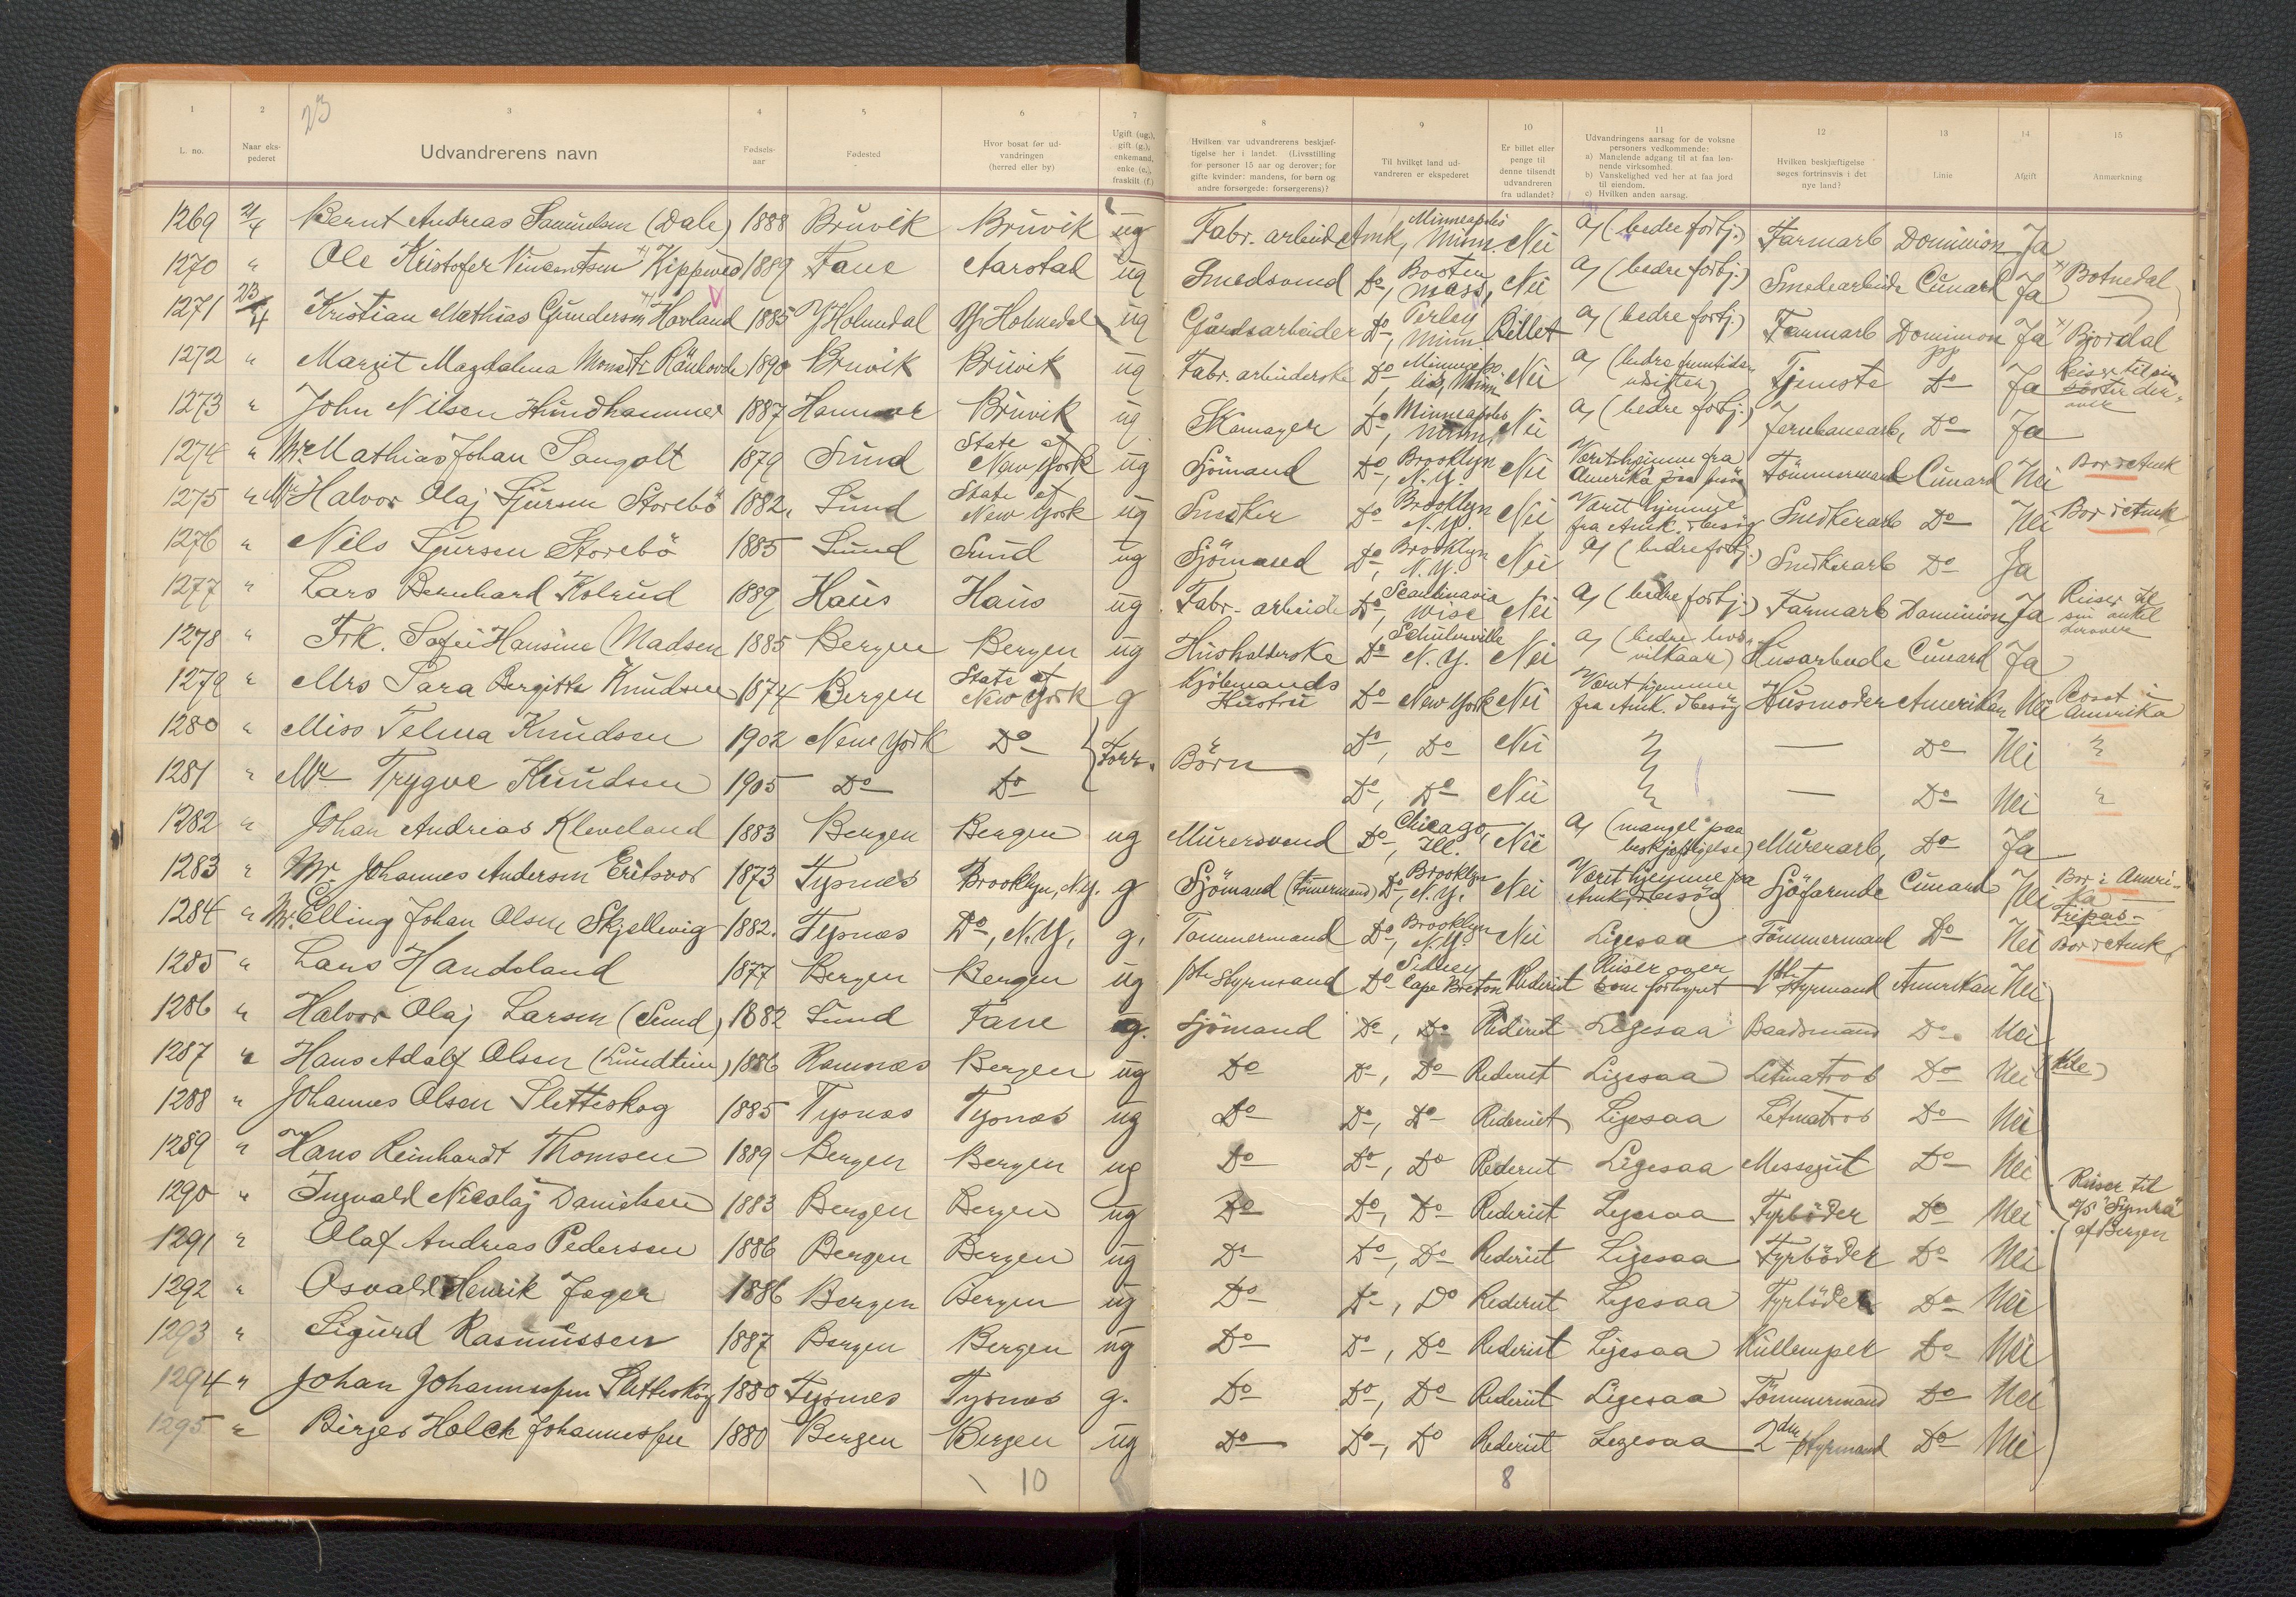 23
1 2 3 4 5 6 7 8 9 10 11 12 13 14 15
L. no. | Naar ekspederet | Udvandrerens navn | Fødselsaar | Fødested | Hvor bosat før udvandringen (herred eller by) | Ugift (ug.), gift (g.), enkemand, enke (e.), fraskilt (f.) | Hvilken var udvandrerens beskjæftigelse her i landet. (Livsstilling for personer 15 aar og derover; for gifte kvinder: mandens, for børn og andre forsørgede: forsørgerens)? | Til hvilket land udvandreren er ekspederet | Er billet eller penge til denne tilsendt udvandreren fra udlandet? | Udvandringens aarsag for de voksne personers vedkommende: a) Manglende adgang til at faa lønnende virksomhed. b) Vanskelighed ved her at faa jord til eiendom. c) Hvilken anden aarsag. | Hvilken beskjæftigelse søges fortrinsvis i det nye land? | Linie | Afgift | Anmærkning
1269 21/4 Bernt Andreas Samuelsen (Dale) 1888 Bruvik Bruvik ug Fabr. arbeid Amk, Minneapolis Minn. Nei a) (bedre fortj.) Farmarb Dominion Ja
1270 " Ole Kristofer Vincentsen x) Kippwed 1889 Fane Aarstad ug Smedsvend Do, Boston Mass, Nei a) (bedre fortj.) Smedearbeide Cunard Ja x) Botnedal
1271 23/4 Kristian Mathias Gundersen x) Hovland 1885 Y Holmedal Y. Holmedal ug Gaardsarbeider Do, Perley Minn Billet a) (bedre fortj.) Farmarb Dominion Ja x) Bjordal
1272 " Margit Magdalena Monsdtr 1890 Bruvik Bruvik ug Fabr. arbeiderske Do Minneapolis, Minn Nei a) (bedre fremtidsudsigter) Tjeneste Do Ja Reiser til sin søster derover
1273 " John Nilsen Hundhammer 1887 Hammer Bruvik ug Skomager Do, Minneapolis Minn, Nei a) (bedre fortj.) Jernbanearb, Do Ja
1274 " Mr. Mathias Johan Sangolt 1879 Sund State of New York ug Sjömand Do, Brooklyn N.Y. Nei Værit hjemme fra Amerika paa besøg Tömmermand Cunard Nei Bor i Amk
1275 " Mr Halvor Olaj Sjursen Storebö 1882. Sund State of New York ug Snedker Do Brooklyn N.Y. Nei Værit hjemme fra Amk. i besøg Snedkerarb Do Nei Bor i Amk
1276 " Nils Sjursen Storebö 1885 Sund Sund ug Sjömand Do, Brooklyn N.Y. Nei a) (bedre fortj.) Snedkerarb Do Ja
1277 " Lars Bernhard Kolrud 1889 Haus Haus ug Fabr. arbeide Do, Scandinavia Wisc Nei a) (bedre fortj.) Farmarb Dominion Ja Reiser til sin onkel derover
1278 " Frk. Sofie Hansine Madsen 1885 Bergen Bergen ug Husholderske Do Schulerville N.Y. Nei a) (bedre livsvilkaar) Husarbeide Cunard Ja
1279 " Mrs Sara Bergitte Knudsen 1874 Bergen State of New York g Kjöbmands Hustru Do New York Nei Værit hjemme fra Amk. i besøg Husmoder Amerikan Nei Bosat i Amerika
1280 " Miss Telma Knudsen 1902 New York Do Forr. Börn Do, Do Nei " — Do Nei "
1281 " Mr Trygve Knudsen 1905 Do Do Do, Do Nei " — Do Nei "
1282 " Johan Andreas Kleveland 1883 Bergen Bergen ug Murersvend Do, Chicago, Ill. Nei a) (mangel paa beskjæftigelse) Murerarb, Do Ja
1283 " Mr. Johannes Andersen Eritsvor 1873 Tysnæs Brooklyn, N.Y. g Sjömand (Tömmermand) Do, Brooklyn N.Y. Nei Værit hjemme fra Amk, i besøg Sjöfarende Cunard Nei Bor i Amerika
1284 " Mr. Elling Johan Olsen Skjellevig 1882. Tysnæs Do, N.Y. g. Tømmermand Do, Brooklyn N.Y. Nei Ligesaa Tömmermand Do Nei Bor i Amk
1285 " Lars Handeland 1877 Bergen Bergen ug 1ste Styrmand Do Sidney Cape Breton Rederiet Reiser over som forhyret 1ste Styrmand Amerikan Nei
1286 " Halvor Olaj Larsen (Sund) 1882 Sund Fane ug. Sjömand Do, Do Rederiet Ligesaa Baadsmand Do Nei
1287 " Hans Adolf Olsen (Lundteim) 1886 Ramnæs Bergen ug Do Do, Do Rederiet Ligesaa Letmatros Do Nei
1288 " Johannes Olsen Sletteskog 1885 Tysnæs Tysnæs ug Do Do, Do Rederiet Ligesaa Letmatros Do Nei
1289 " Hans Reinhardt Thomsen 1889 Bergen Bergen ug Do Do, Do Rederiet Ligesaa Messegut Do Nei
1290 " Ingvald Nicolaj Danielsen 1883 Bergen Bergen ug Do Do, Do Rederiet Ligesaa Fyrböder Do Nei Reiser til D/S "Symra" af Bergen
1291 " Olaf Andreas Pedersen 1886 Bergen Bergen ug Do Do, Do Rederiet Ligesaa Fyrböder Do Nei
1292 " Osvald Henrik Jeger 1886 Bergen Bergen ug Do Do, Do Rederiet Ligesaa Fyrböder Do Nei
1293 " Sigurd Rasmussen 1887 Bergen Bergen ug Do Do, Do Rederiet Ligesaa Kullemper Do Nei
1294 " Johan Johannessen Sletteskog 1880 Tysnes Tysnæs g. Do Do, Do Rederiet Ligesaa Tömmermand Do Nei
1295 " Birger Holck Johannessen 1880 Bergen Bergen ug Do Do, Do Rederiet Ligesaa 2den Styrmand Do Nei
10 8